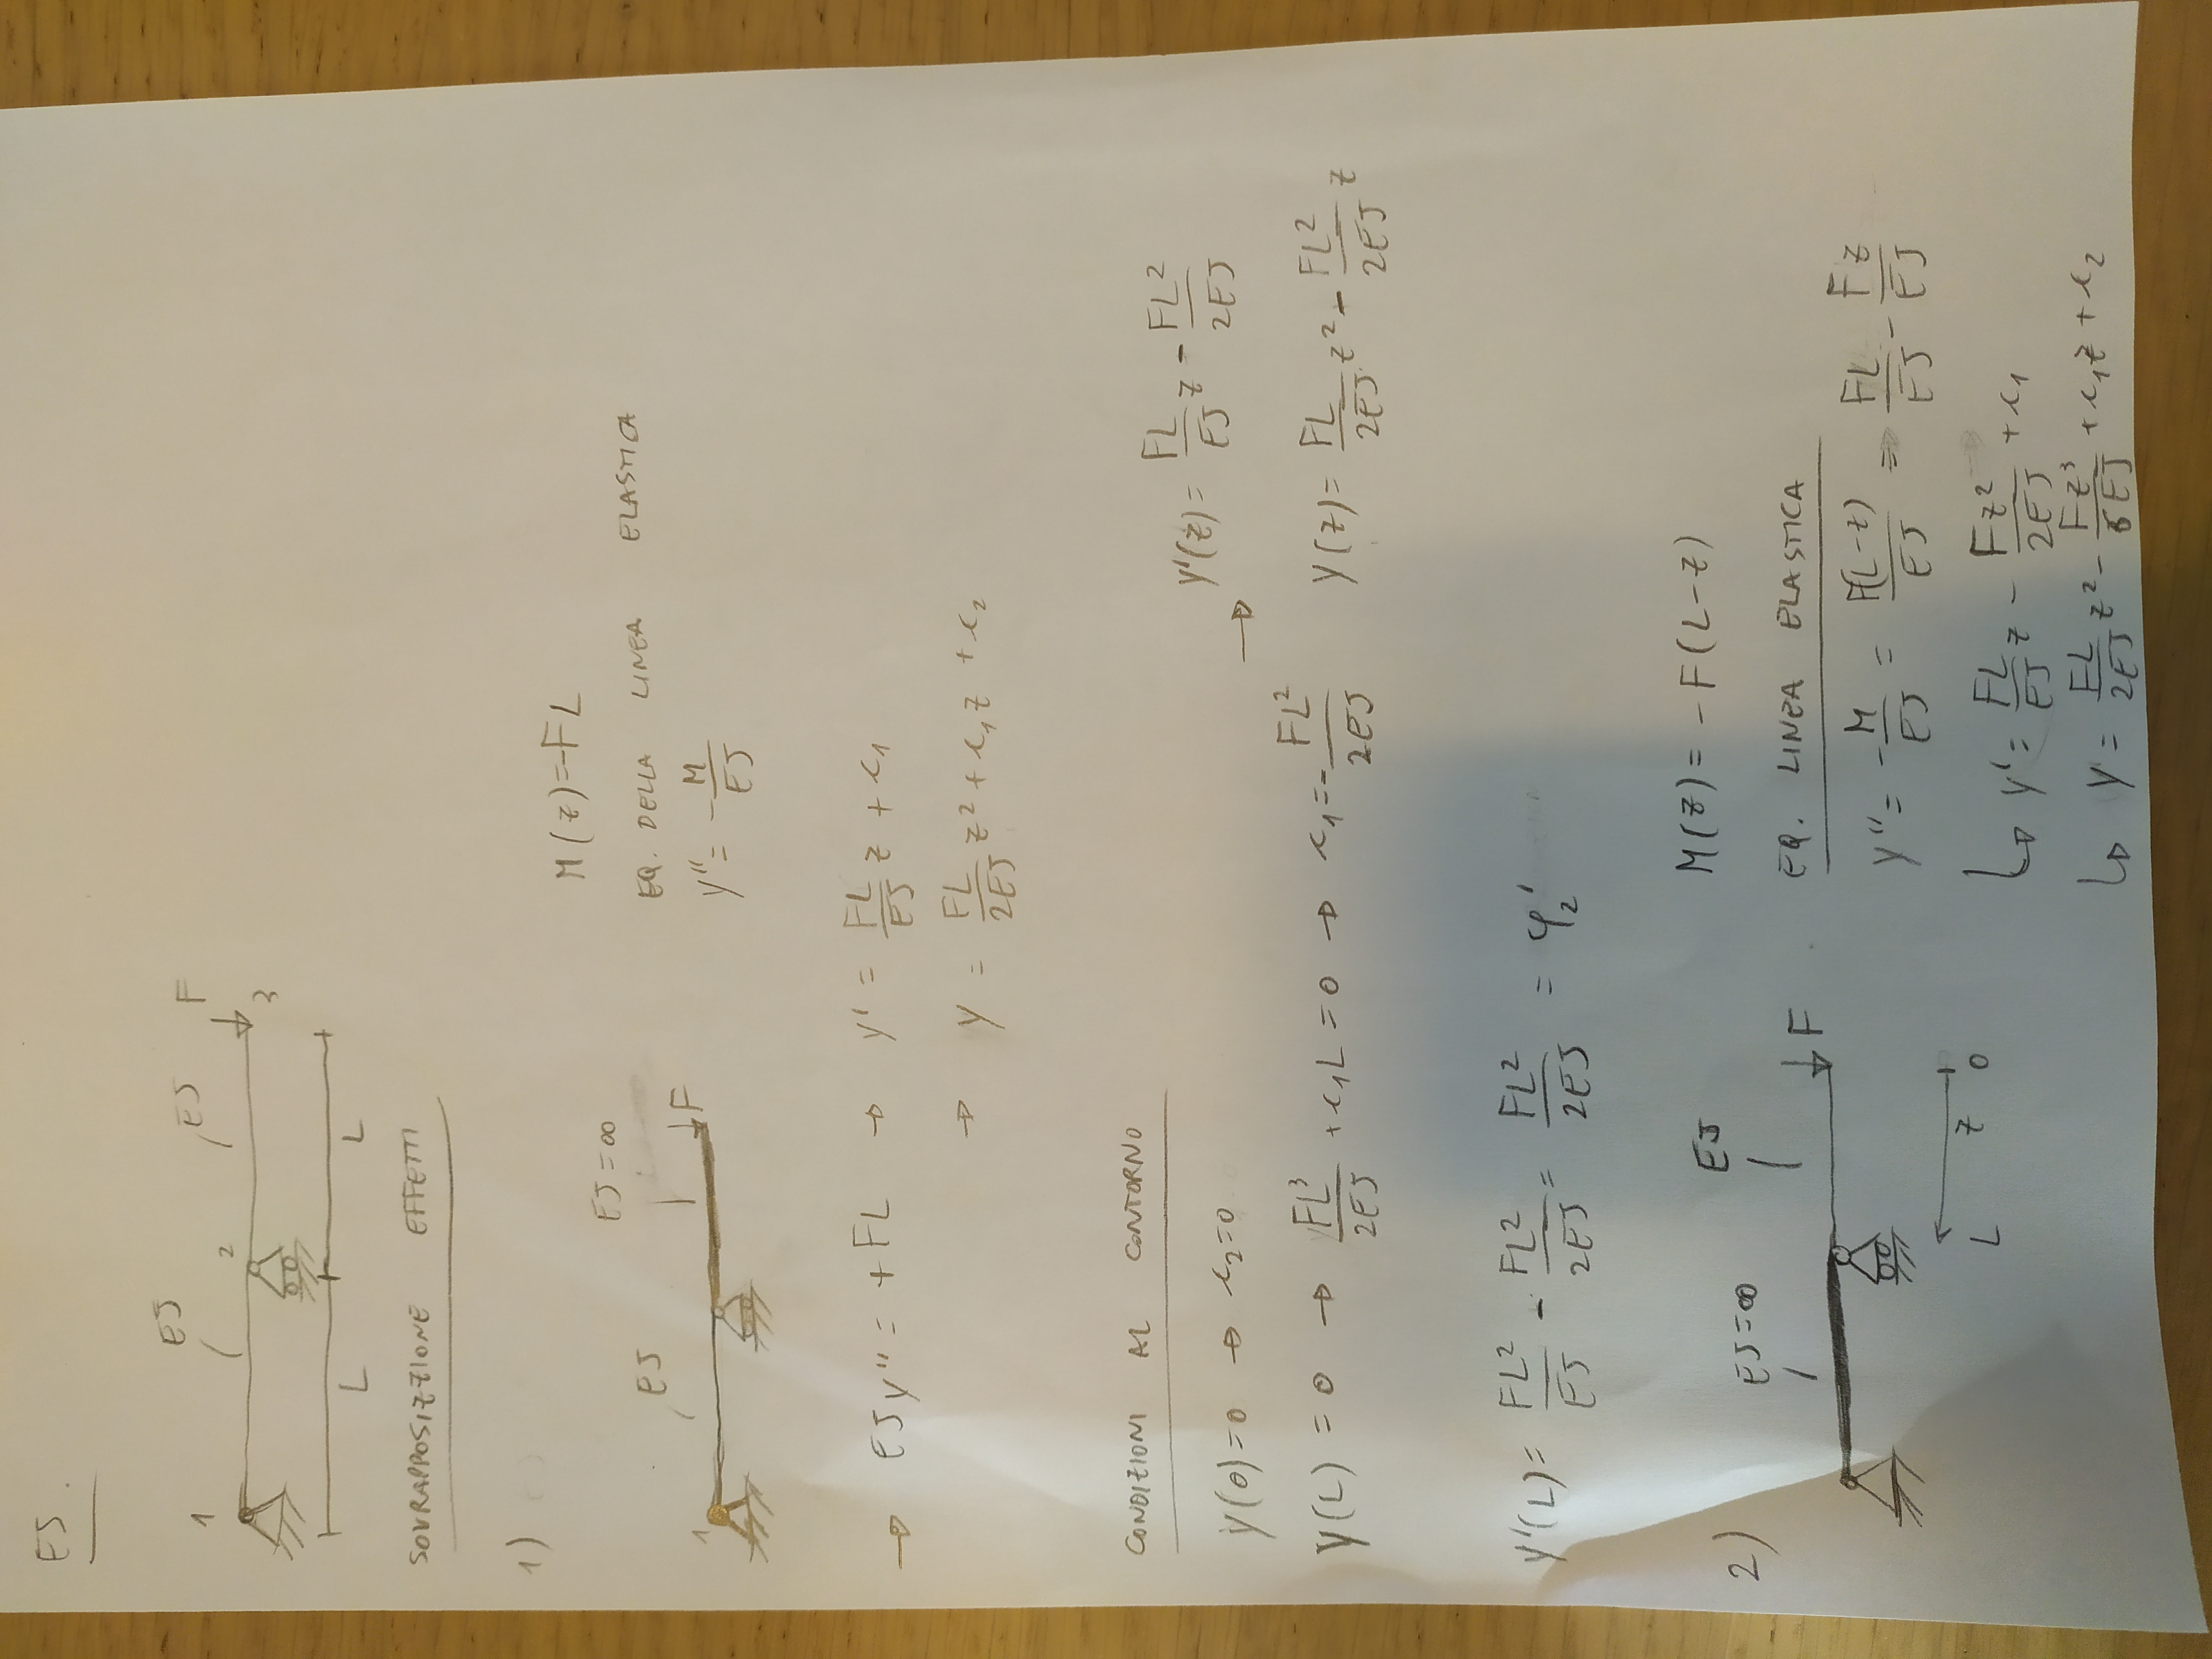 ES.
EJ EJ F
1 2 3
L L
SOVRAPPOSIZZIONE EFFETTI
1)
EJ EJ=∞
1 F
M(z)=-FL
EQ. DELLA LINEA ELASTICA
y''= -M/EJ
→ EJy''=+FL → y' = FL/EJ z + c₁
→ y = FL/2EJ z² + c₁z + c₂
CONDIZIONI AL CONTORNO
y(0)=0 → c₂=0
y(L)=0 → FL³/2EJ + c₁L=0 → c₁=-FL²/2EJ
→ y'(z)= FL/EJ z - FL²/2EJ
y(z)= FL/2EJ z² - FL²/2EJ z
y'(L)= FL²/EJ - FL²/2EJ = FL²/2EJ = φ₂'
2)
EJ=∞ EJ
F
L z 0
M(z)= -F(L-z)
EQ. LINEA ELASTICA
y''= -M/EJ = F(L-z)/EJ ⇒ FL/EJ - Fz/EJ
↳ y'= FL/EJ z - Fz²/2EJ + c₁
↳ y= FL/2EJ z² - Fz³/6EJ + c₁z + c₂